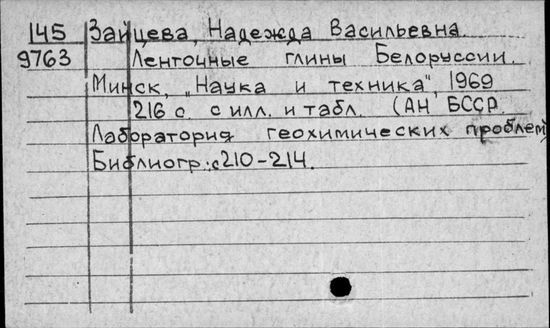 145 Зайцева, Надежда Васильевна.
9763 Ленточные глины Белоруссии.
Минск, „Наука и техника", 1969
216 с. с илл. и табл. (АН БССР.
Лаборатория геохимических проблем)
Библиогр.: с 210-214.